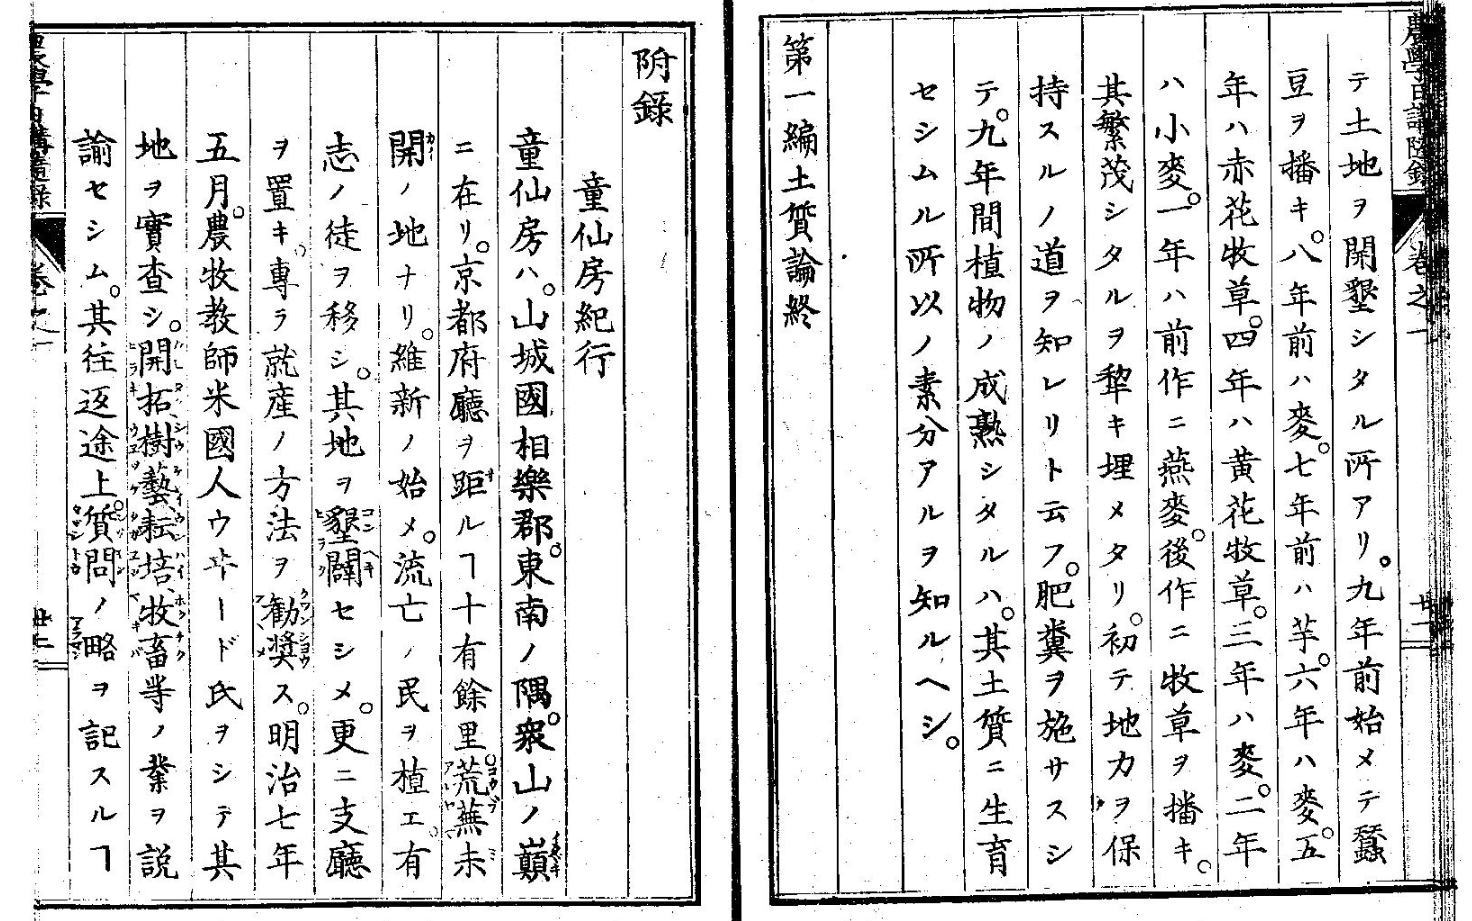 テ土地ヲ開墾シタル所アリ。九年前始メテ蠶
豆ヲ播キ。八年前ハ麥。七年前ハ芋。六年ハ麥。五
年ハ赤花牧草。四年ハ黄花牧草。三年ハ麥。二年
ハ小麥。一年ハ前作ニ燕麥。後作ニ牧草ヲ播キ。
其繁茂シタルヲ犂キ埋メタリ。初テ地力ヲ保
持スルノ道ヲ知レリト云フ。肥糞ヲ施サスシ
テ。九年間植物ノ成熟シタルハ。其土質ニ生育
セシムル所以ノ素分アルヲ知ルヘシ。
第一編土質論終
附錄
童仙房紀行
童仙房ハ。山城國相樂郡。東南ノ隅。衆山ノ巓
ニ在リ。京都府廳ヲ距ルヿ十有餘里。荒蕪未
開ノ地ナリ。維新ノ始メ。流亡ノ民ヲ植エ。有
志ノ徒ヲ移シ。其地ヲ墾闢セシメ。更ニ支廳
ヲ置キ。專ラ就產ノ方法ヲ勸奬ス。明治七年
五月。農牧教師米國人ウヰード氏ヲシテ其
地ヲ實查シ。開拓、樹藝、耘培、牧畜等ノ業ヲ說
諭セシム。其往返途上。質問ノ略ヲ記スルヿ